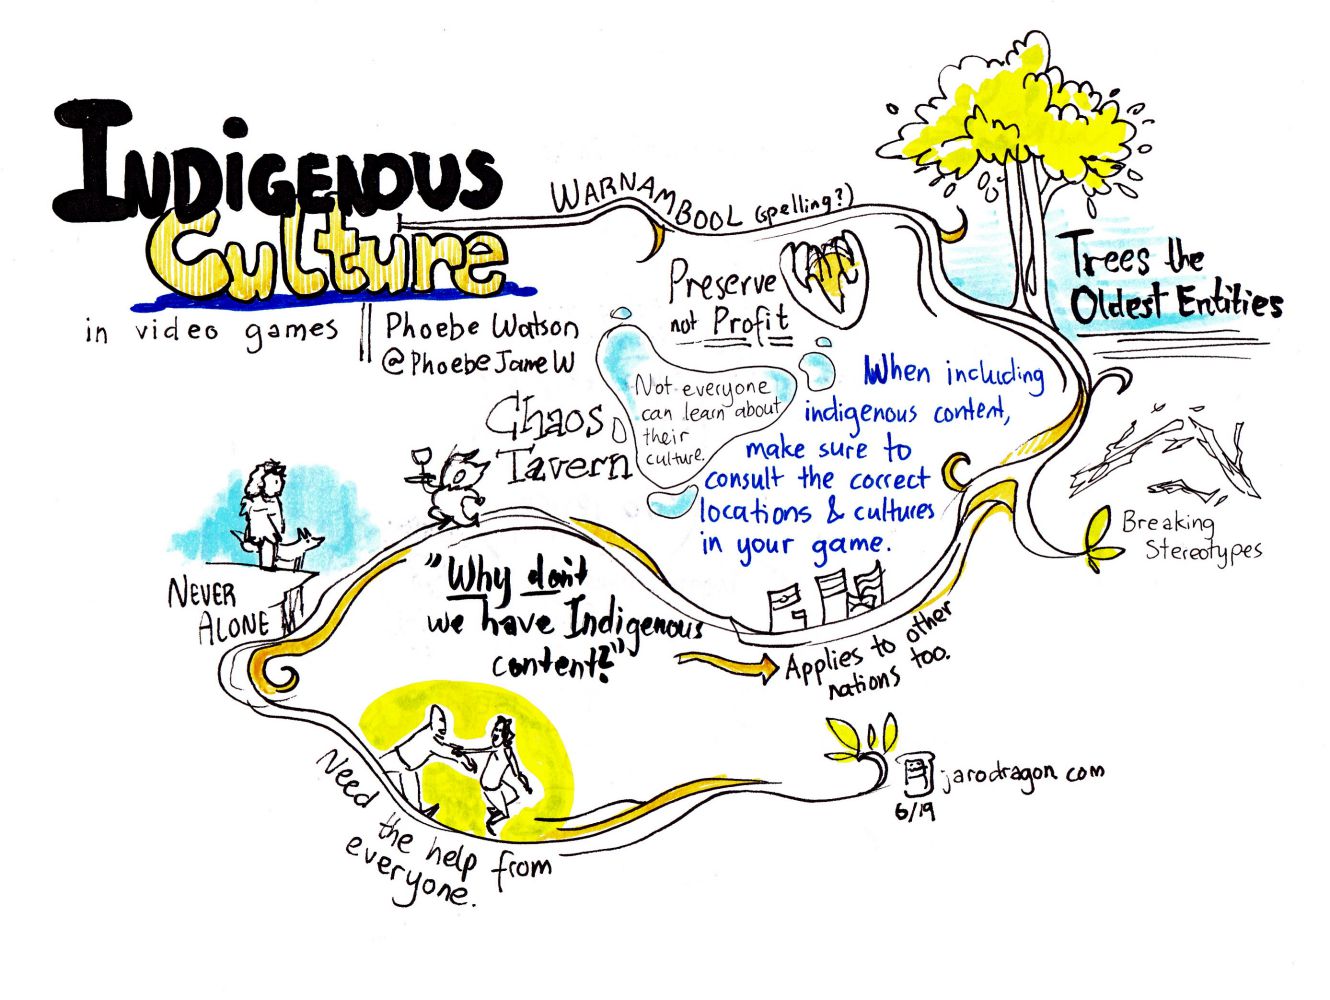 INDIGENOUS
Culture
in video games
Phoebe Watson
@PhoebeJaneW
WARNAMBOOL (spelling?)
Preserve
not Profit
Trees the
Oldest Entities
Not everyone
can learn about
their
culture.
When including
indigenous content,
make sure to
consult the correct
locations & cultures
in your game.
Breaking
Stereotypes
Chaos
Tavern
NEVER
ALONE
"Why don't
we have Indigenous
content?"
Applies to other
nations too.
Need the help from
everyone.
jarodragon com
6/19